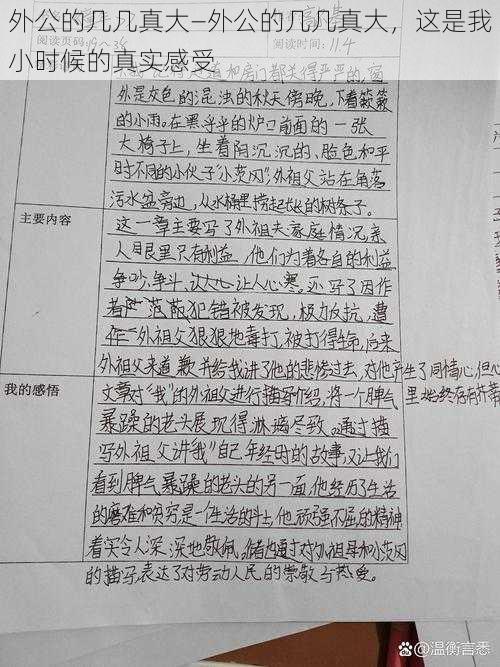 外公的几几真大—外公的几几真大，这是我
小时候的真实感受
外是灰色的混浊的秋天傍晚，下着簌簌
的小雨。在黑乎乎的炉口前面的一张
大椅子上，坐着阴沉沉的、脸色和平
时不同的小伙子“小茨冈”，外祖父站在角落
污水盆旁边，从水桶里捞起长长的树条子。
主要内容
这一章主要写了外祖夫家庭情况，亲
人眼里只有利益，他们为着各自的利益
争吵、争斗、让人心寒。还写了因作
者 犯错被发现，极力反抗，遭
外祖父狠狠地毒打，被打得生病，后来
外祖父来道歉并给我讲了他的悲惨过去，对他产生了同情心，但心
里始终存有芥蒂
我的感悟
文章对“我”的外祖父进行描写介绍，将一个脾气
暴躁的老头展现得淋漓尽致。通过描
写外祖父讲“我”自己年轻时的故事，又让我们
看到脾气暴躁的老头的另一面，他经历了生活
的磨难和贫穷是一位生活的斗士，他顽强不屈的精神
着实令人深深地敬佩。作者内通过对外祖母和小茨冈
的描写，表达了对劳动人民的崇敬与热爱。
@温衡言悉